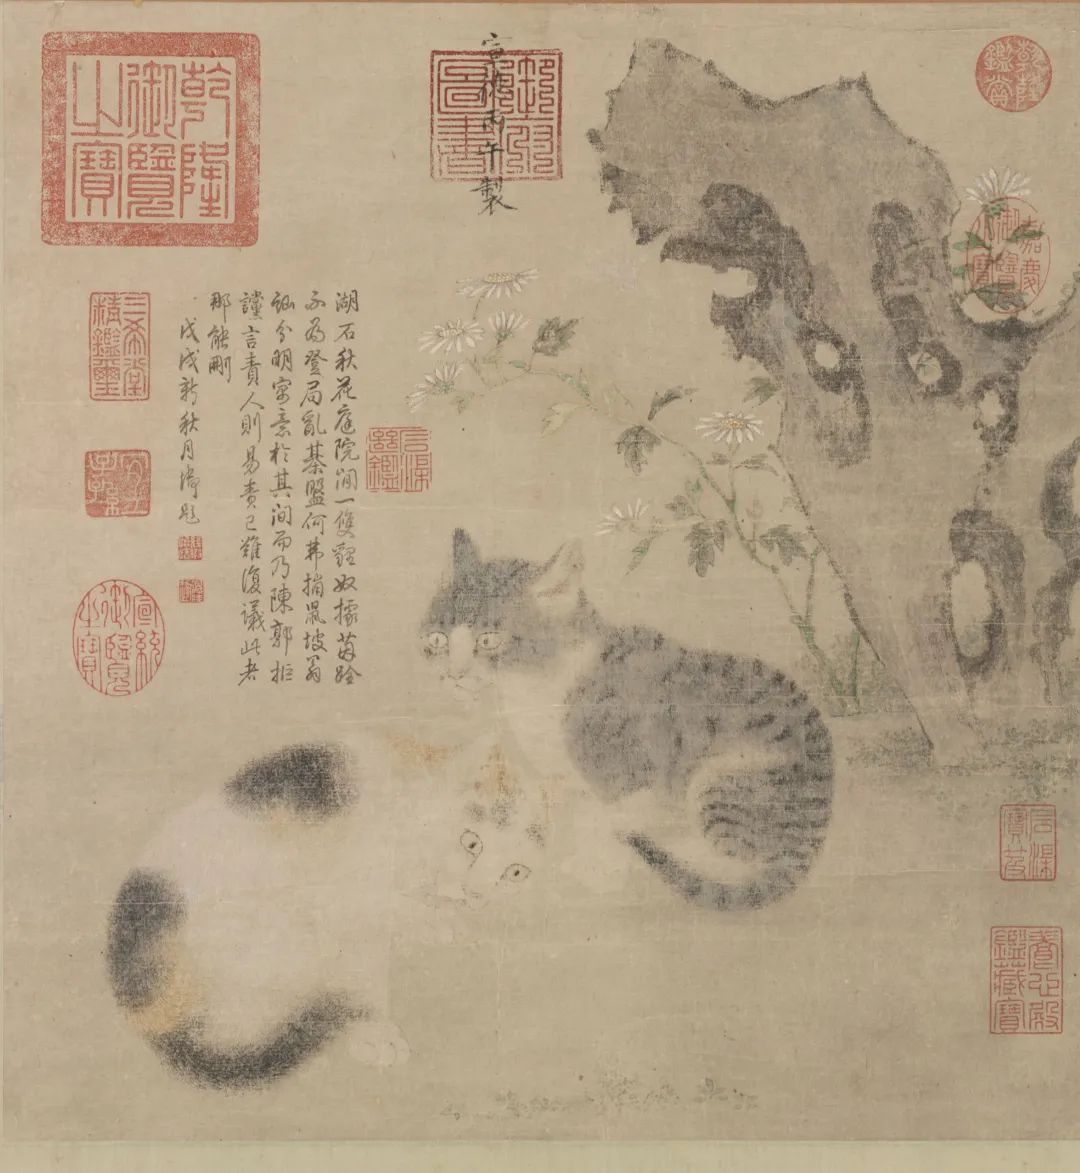 乾隆鑑賞
嘉慶御覽之寶
宣德丙午製
圖書
乾隆御覽之寶
湖石秋花庭院間一雙貍奴據茵跧
不為登局亂棊盤何弗捎鼠坡翁
訕分明寓意於其間而乃陳郭拒
讜言責人則易責己難復議此者
那能刪
戊戌新秋月御題
三希堂精鑑璽
宜子孫
宣統御覽之寶
石渠寶笈
養心殿鑑藏寶